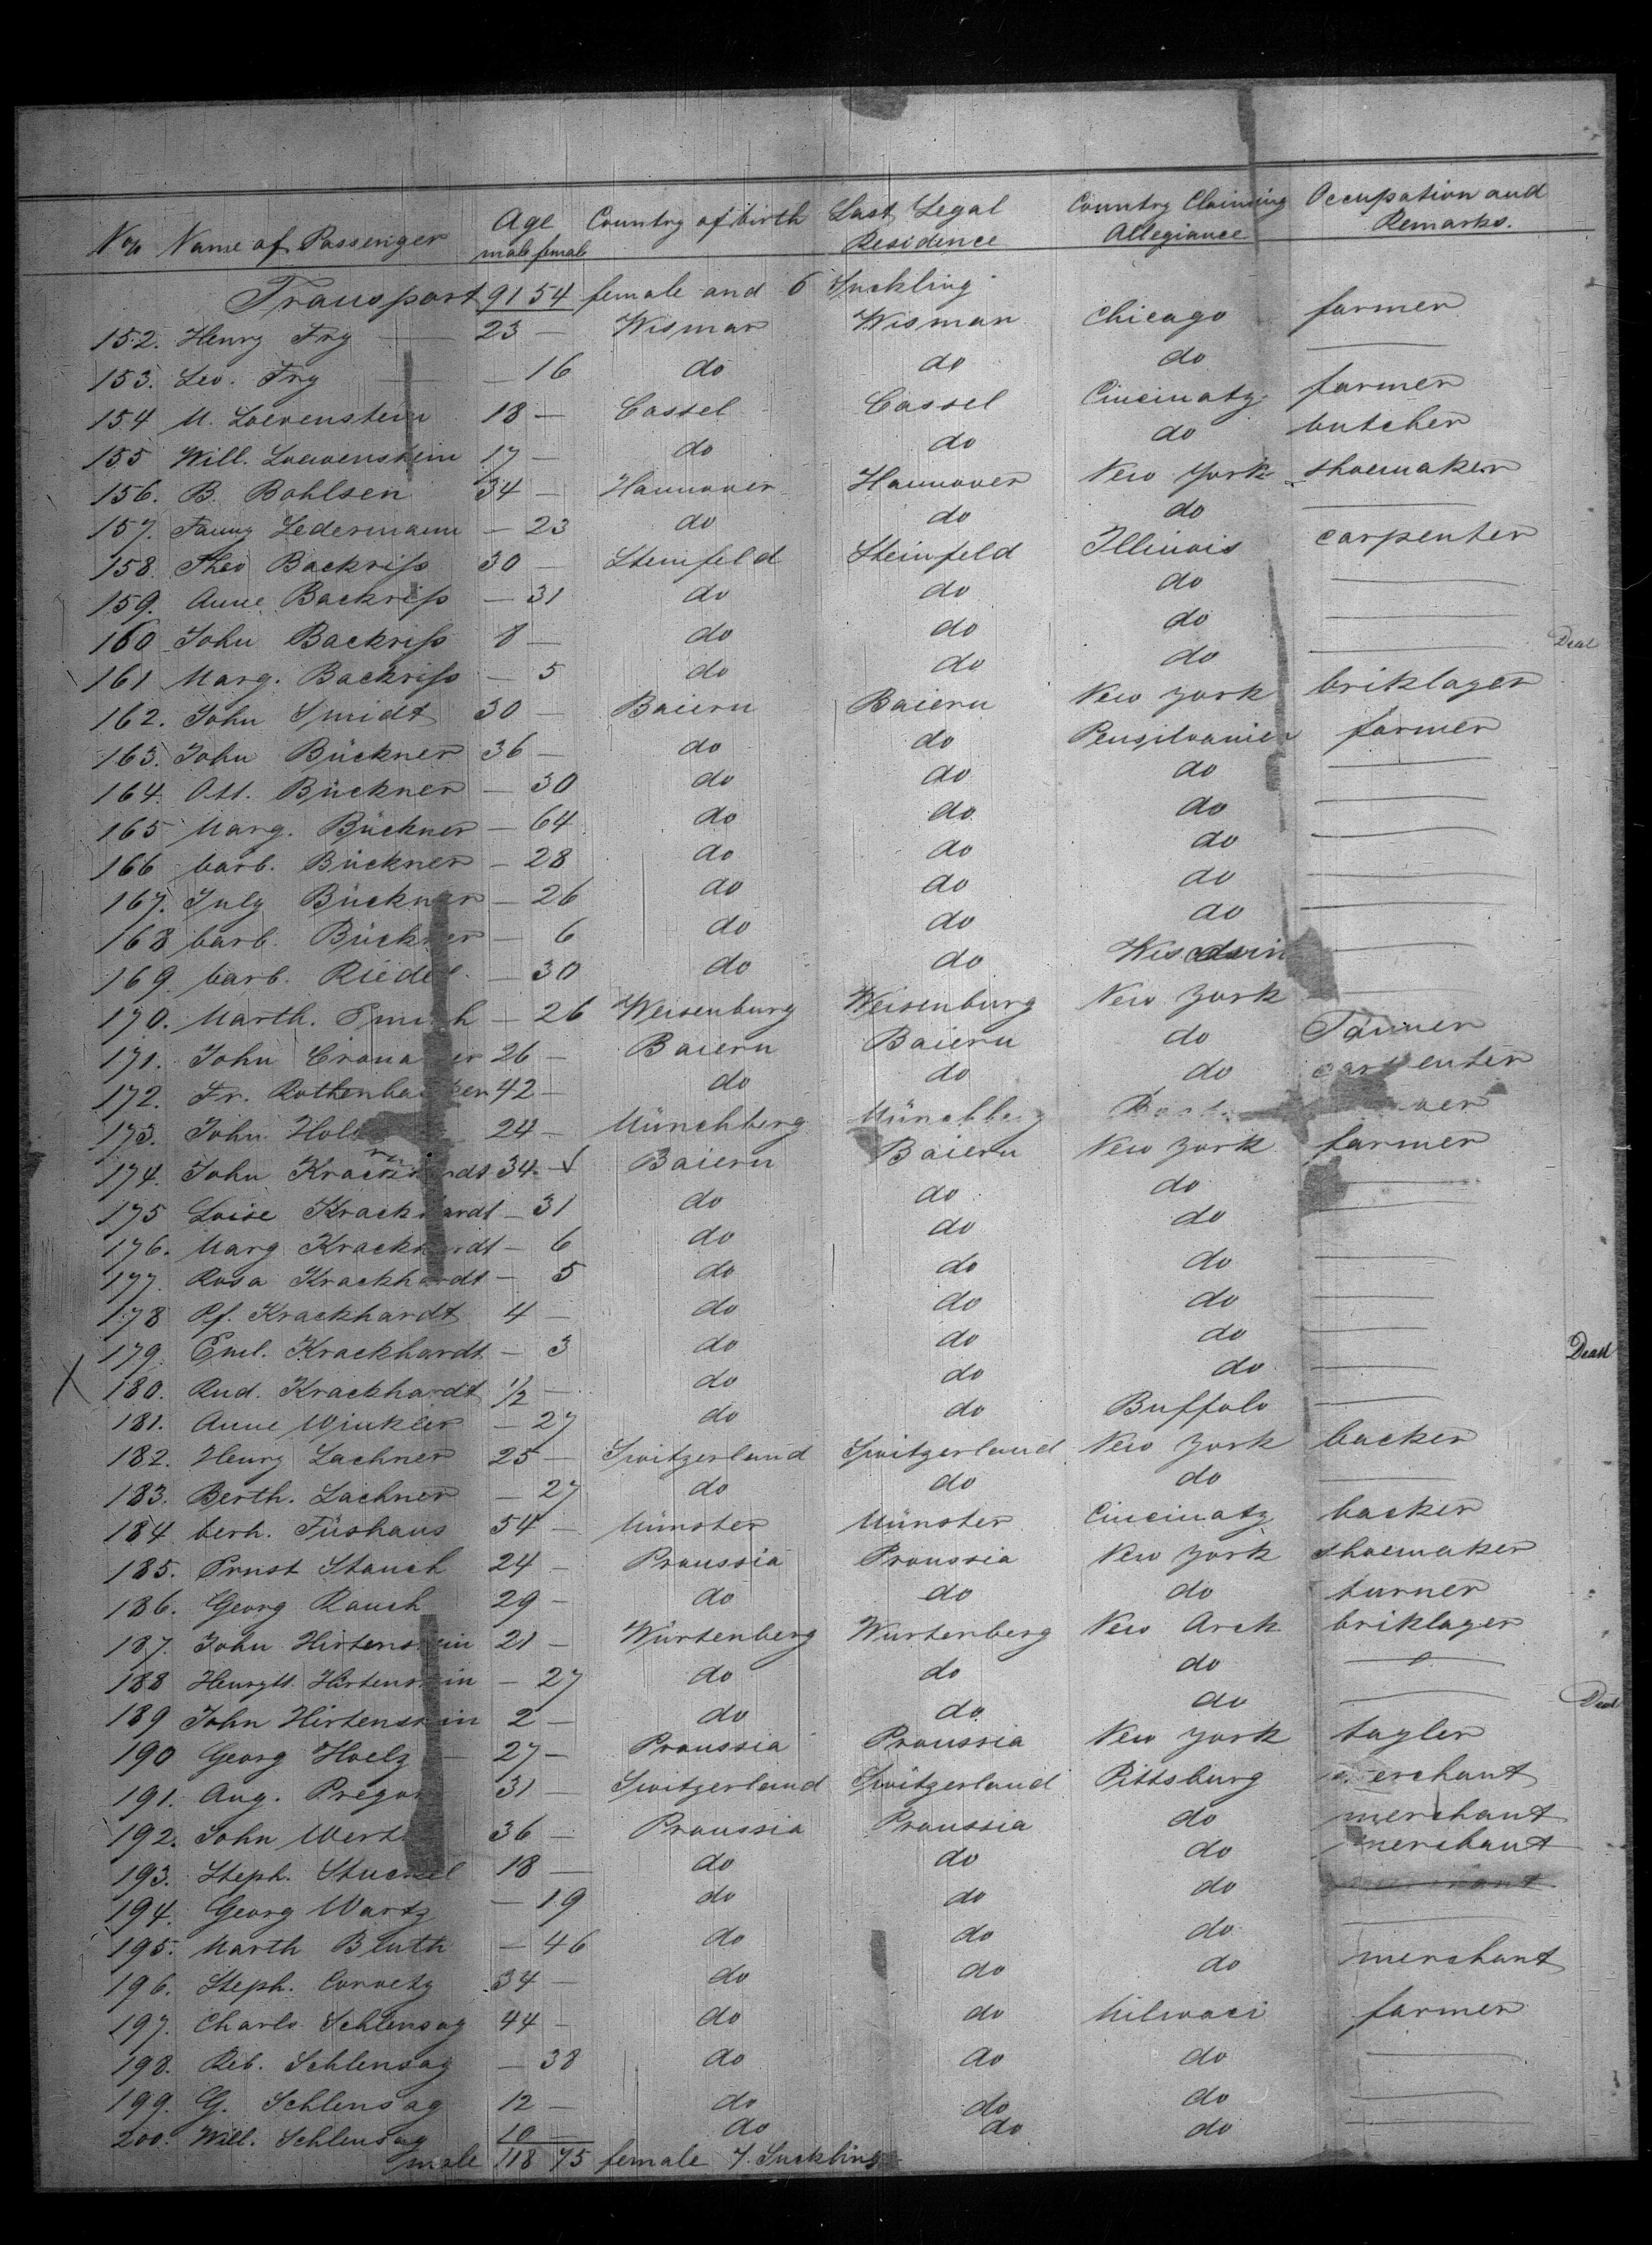 No Name of Passenger Age male female Country of birth Last Legal Residence Country Claiming Allegiance Occupation and Remarks.
Transport 91 54 female and 6 Suckling
152. Henry Fry — 23 — Wismar Wismar Chicago farmer
153. Leo. Fry — — 16 do do do —
154 M. Loevenstein 18 — Cassel Cassel Cincinaty farmer
155 Will. Loewenstein 17 — do do do butcher
156. B. Bohlsen 34 — Hannover Hannover New York shoemaker
157. Fanny Ledermann — 23 do do do —
158. Theo Backriss 30 — Steinfeld Steinfeld Illinois carpenter
159. Anne Backriss — 31 do do do —
160 John Backriss 8 — do do do — Dead
161 Marg. Backriss — 5 do do do —
162. John Smidt 30 — Baiern Baiern New York briklayer
163. John Bückner 36 — do do Pensilvanien farmer
164. Ott. Bückner — 30 do do do —
165 Marg. Bückner — 64 do do do —
166 barb. Bückner — 28 do do do —
167. July Bückner — 26 do do do —
168 barb. Bückner — 6 do do do —
169. barb. Riedel — 30 do do —
170. Marth. — 26 Weisenburg Weisenburg New York —
171. John 26 — Baiern Baiern do
172. Fr. 42 — do do do carpenter
173. John 24 — Münchberg Münchberg
174. John Krackhardt 34 — Baiern Baiern New York farmer
175 Loise Krackhardt — 31 do do do —
176. Marg Krackhardt — 6 do do do —
177. Rosa Krackhardt — 5 do do do —
178 Pf. Krackhardt 4 — do do do —
179. Eml. Krackhardt — 3 do do do — Dead
X 180. Rud. Krackhardt 1/2 — do do do —
181. Anne Winkler — 27 do do Buffolo —
182. Henry Lachner 25 — Switzerland Switzerland New York backer
183. Berth. Lachner — 27 do do do —
184 berh. Füshaus 54 — Münster Münster Cincinaty backer
185. Ernst Stauch 24 — Proussia Proussia New York shoemaker
186. Georg Rauch 29 — do do do turner
187. John Hirtenstein 21 — Würtenberg Wurtenberg New Ark briklayer
188 Henrytt. Hirtenstein — 27 do do do —
189 John Hirtenstein 2 — do do do — Dead
190 Georg Hoelz — 27 — Proussia Proussia New York tayler
191. Aug. 31 — Switzerland Switzerland Pittsburg merchant
192. John 36 — Proussia Proussia do merchant
193. Steph. 18 — do do do merchant
194. Georg Wartz — 19 do do do
195. Marth Bluth — 46 do do do —
196. Steph. 34 — do do do merchant
197. Charls Schlensag 44 — do do Milwaci farmer
198. Reb. Schlensag — 38 do do do —
199. G. Schlensag 12 — do do do —
200. Will. Schlensag 10 — do do do —
male 118 75 female 7. Suckling